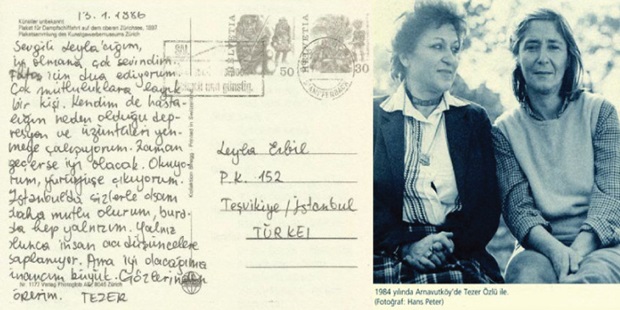 13.1.1986
Künstler unbekannt
Plakat für Dampfschiffahrt auf dem oberen Zürichsee, 1897
Plakatsammlung des Kunstgewerbemuseums Zürich
Sevgili Leylâ'cığım,
iyi olmana çok sevindim.
Fatoş'ün dua ediyorum.
Çok mutluluklara layık
bir kişi. Kendim de hasta-
lığın neden olduğu dep-
resyon ve üzüntüleri yen-
meye çalışıyorum. Zaman
geçerse iyi olacak. Okuyo-
rum, yürüyüşe çıkıyorum.
İstanbul'da sizlerle olsam
daha mutlu olurum, bur-
da hep yalnızım. Yalnız
olunca insan acı düşüncelere
saplanıyor. Ama iyi olacağıma
inancım büyük. Gözlerinden
öperim. TEZER
Printed in Switzerland
HELVETIA
50
HELVETIA
30
Leylâ Erbil
P.K. 152
Teşvikiye/İstanbul
TÜRKEI
1984 yılında Arnavutköy'de Tezer Özlü ile.
(Fotoğraf: Hans Peter)